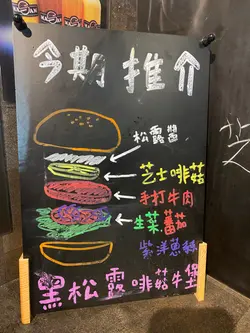 今期推介
松露醬
芝士啡菇
手打牛肉
生菜蕃茄
紫洋蔥鵝
黑松露啡菇牛堡